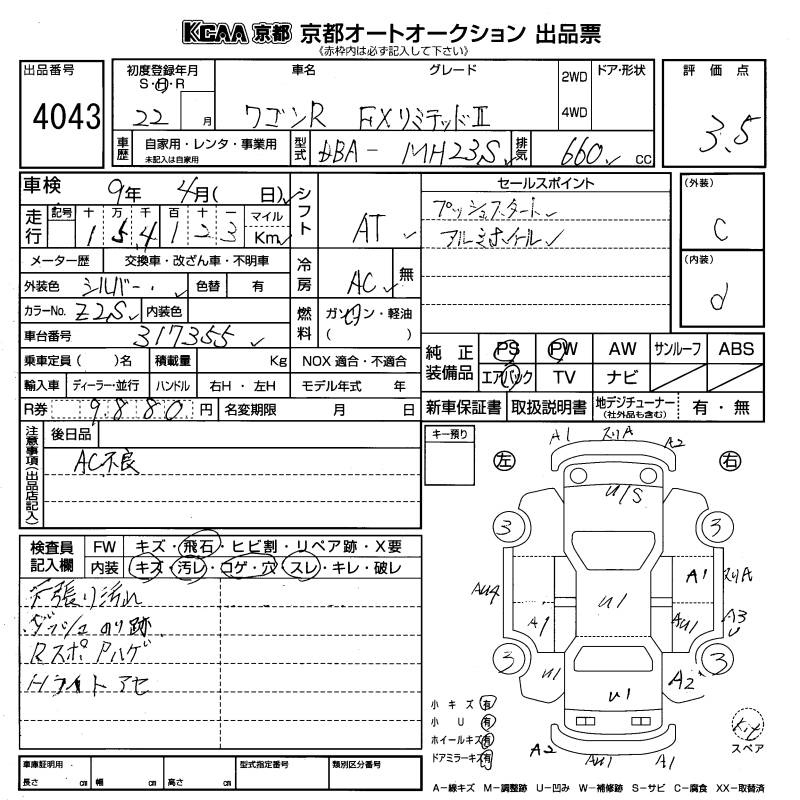 KCAA 京都 京都オートオークション 出品票
《赤枠内は必ず記入して下さい》
出品番号 4043
初度登録年月 S・H・R 22 月
車名 グレード ワゴンR FXリミテッドⅡ
2WD 4WD ドア・形状
評価点 3.5
車歴 自家用・レンタ・事業用 未記入は自家用
型式 DBA- MH23S
排気 660 CC
車検 9年 4月( 日)
シフト AT
走行 記号 十 万 千 百 十 一 マイル Km
1 5 4 1 2 3
メーター歴 交換車・改ざん車・不明車
冷房 AC 無
外装色 シルバー 色替 有
カラーNo. Z2S 内装色
燃料 ガソリン・軽油 ( )
車台番号 317355
乗車定員 ( )名 積載量 Kg NOX 適合・不適合
輸入車 ディーラー・並行 ハンドル 右H・左H モデル年式 年
R券 9880 円 名変期限 月 日
セールスポイント
プッシュスタート
アルミホイール
(外装) C
(内装) d
純正装備品 PS PW AW サンルーフ ABS
エアバック TV ナビ
新車保証書 取扱説明書 地デジチューナー (社外品も含む) 有・無
注意事項(出品店記入) 後日品
AC不良
キー預り
検査員記入欄 FW キズ・飛石・ヒビ割・リペア跡・X要
内装 キズ・汚レ・コゲ・穴・スレ・キレ・破レ
天張り汚れ
ダッシュのり跡
RスポPハゲ
Hライトアセ
左 右
A1 スリA A2
U/S
3 3
A1 スリA
AU4 U1
A1 AU1 A3 U
3 3
U1 A2
U1
A2 AU1 A1
小キズ 有
小U 有
ホイールキズ 有
ドアミラーキズ 有
キット
スペア
車庫証明用 長さ cm 幅 cm 高さ cm
型式指定番号 類別区分番号
A−線キズ M−調整跡 U−凹み W−補修跡 S−サビ C−腐食 XX−取替済